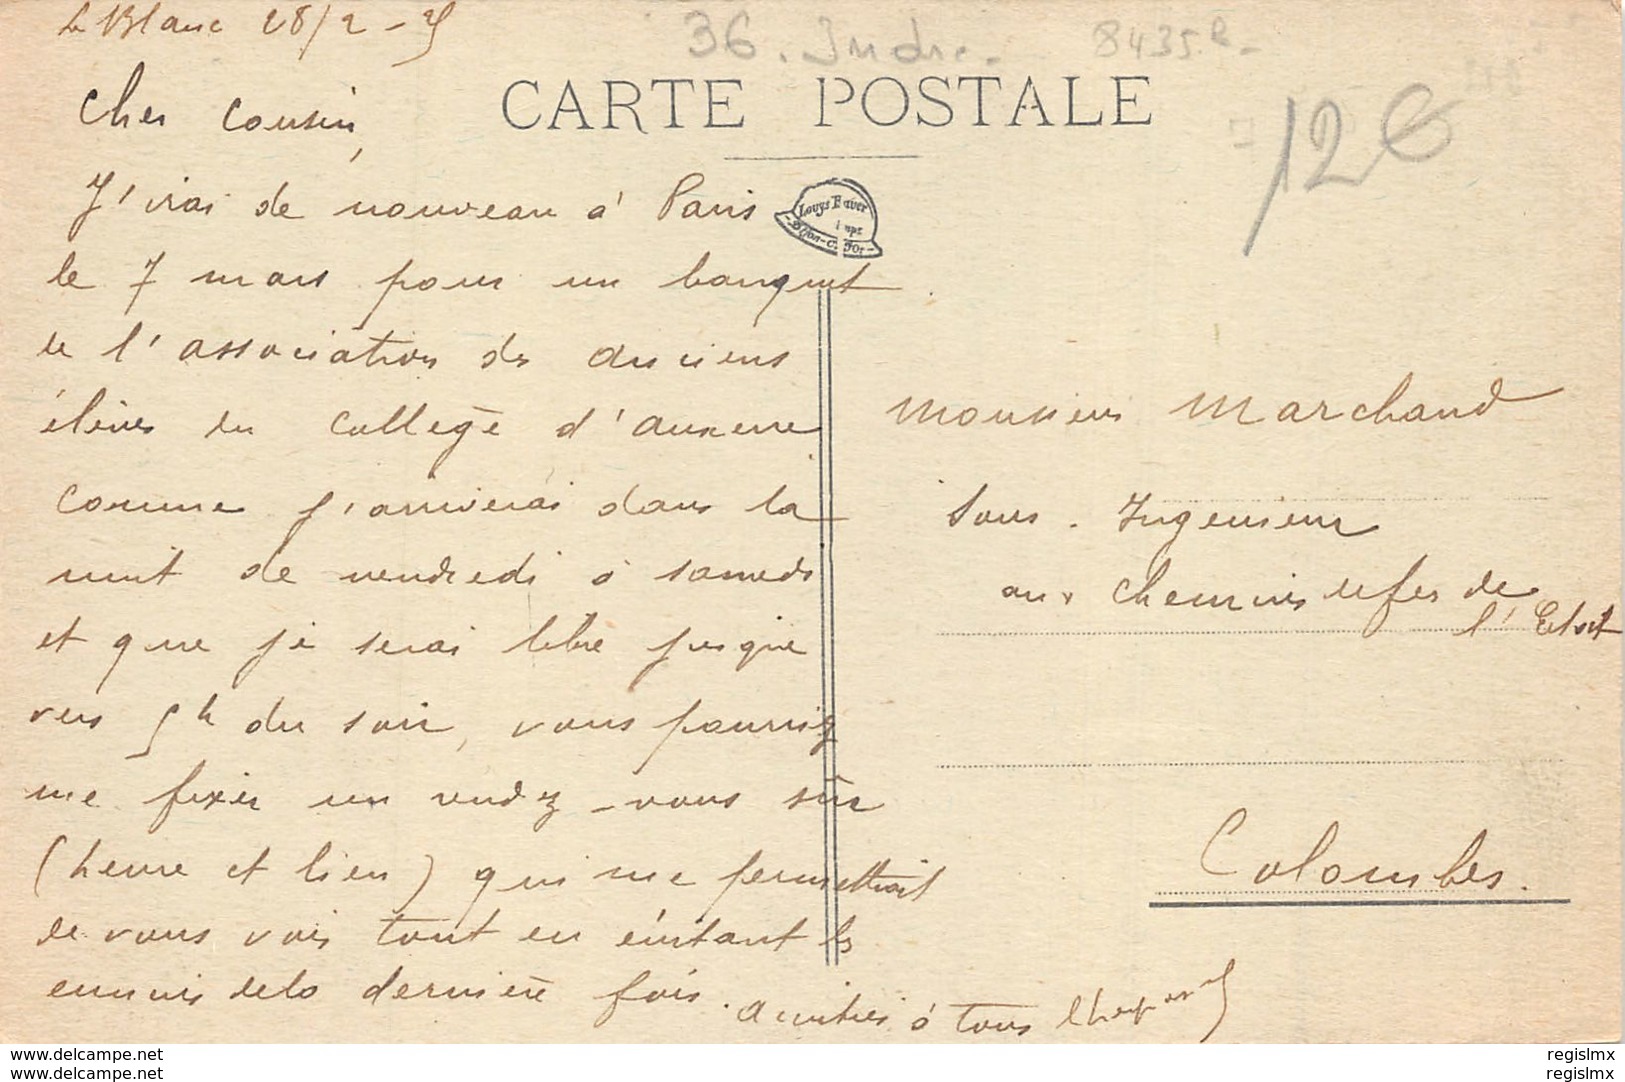 Le Blanc 28/2 - 25
36. Indre.
8435.
CARTE POSTALE
12 €
Cher Cousin,
J'irai de nouveau à Paris
le 7 mars pour un banquet
de l'association des anciens
élèves du Collège d'Auxerre
comme j'arriverai dans la
nuit de vendredi à samedi
et que je serai libre jusque
vers 5h du soir, vous pourriez
me fixer un rendez-vous sûr
(heure et lieu) qui me permettrait
de vous voir tout en évitant les
ennuis de la dernière fois. Amitiés à tous
Louys Bauer
Imp.
Dijon-C. d'Or
Monsieur Marchand
Sous-Ingénieur
aux chemins de fer de
l'Etat
Colombes.
www.delcampe.net
www.delcampe.com
regislmx
regislmx